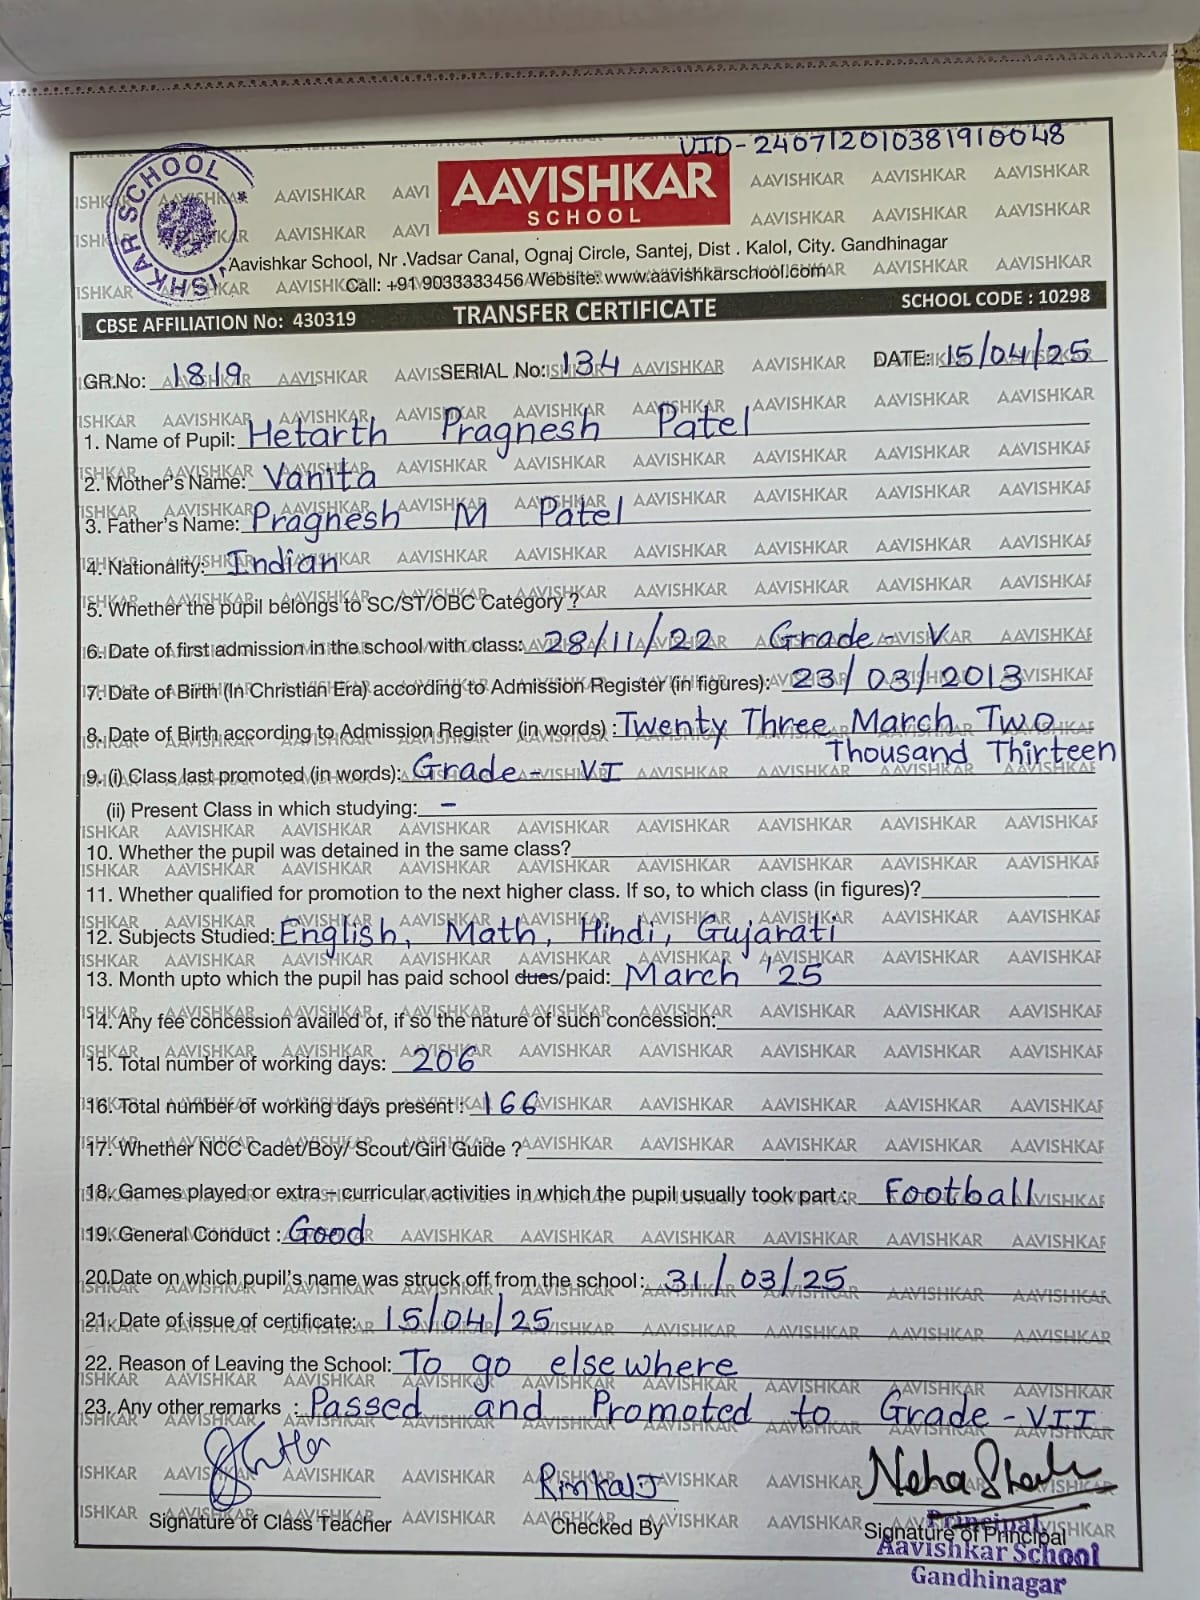 UID-240712010381910048
AAVISHKAR SCHOOL
AAVISHKAR
SCHOOL
Aavishkar School, Nr .Vadsar Canal, Ognaj Circle, Santej, Dist . Kalol, City. Gandhinagar
Call: +91 9033333456 Website: www.aavishkarschool.com
CBSE AFFILIATION No: 430319 TRANSFER CERTIFICATE SCHOOL CODE : 10298
GR.No: 1819 SERIAL No: 134 DATE: 15/04/25
1. Name of Pupil: Hetarth Pragnesh Patel
2. Mother's Name: Vanita
3. Father's Name: Pragnesh M Patel
4. Nationality: Indian
5. Whether the pupil belongs to SC/ST/OBC Category ?
6. Date of first admission in the school with class: 28/11/22 Grade - V
7. Date of Birth (In Christian Era) according to Admission Register (in figures): 23/03/2013
8. Date of Birth according to Admission Register (in words) : Twenty Three March Two
Thousand Thirteen
9. (i) Class last promoted (in words): Grade - VI
(ii) Present Class in which studying: -
10. Whether the pupil was detained in the same class?
11. Whether qualified for promotion to the next higher class. If so, to which class (in figures)?
12. Subjects Studied: English, Math, Hindi, Gujarati
13. Month upto which the pupil has paid school dues/paid: March '25
14. Any fee concession availed of, if so the nature of such concession:
15. Total number of working days: 206
16. Total number of working days present : 166
17. Whether NCC Cadet/Boy/ Scout/Girl Guide ?
18. Games played or extra – curricular activities in which the pupil usually took part : Football
19. General Conduct : Good
20.Date on which pupil's name was struck off from the school: 31/03/25
21. Date of issue of certificate: 15/04/25
22. Reason of Leaving the School: To go else where
23. Any other remarks : Passed and Promoted to Grade - VII
Rinkal J
Signature of Class Teacher Checked By Signature of Principal
Principal
Aavishkar School
Gandhinagar